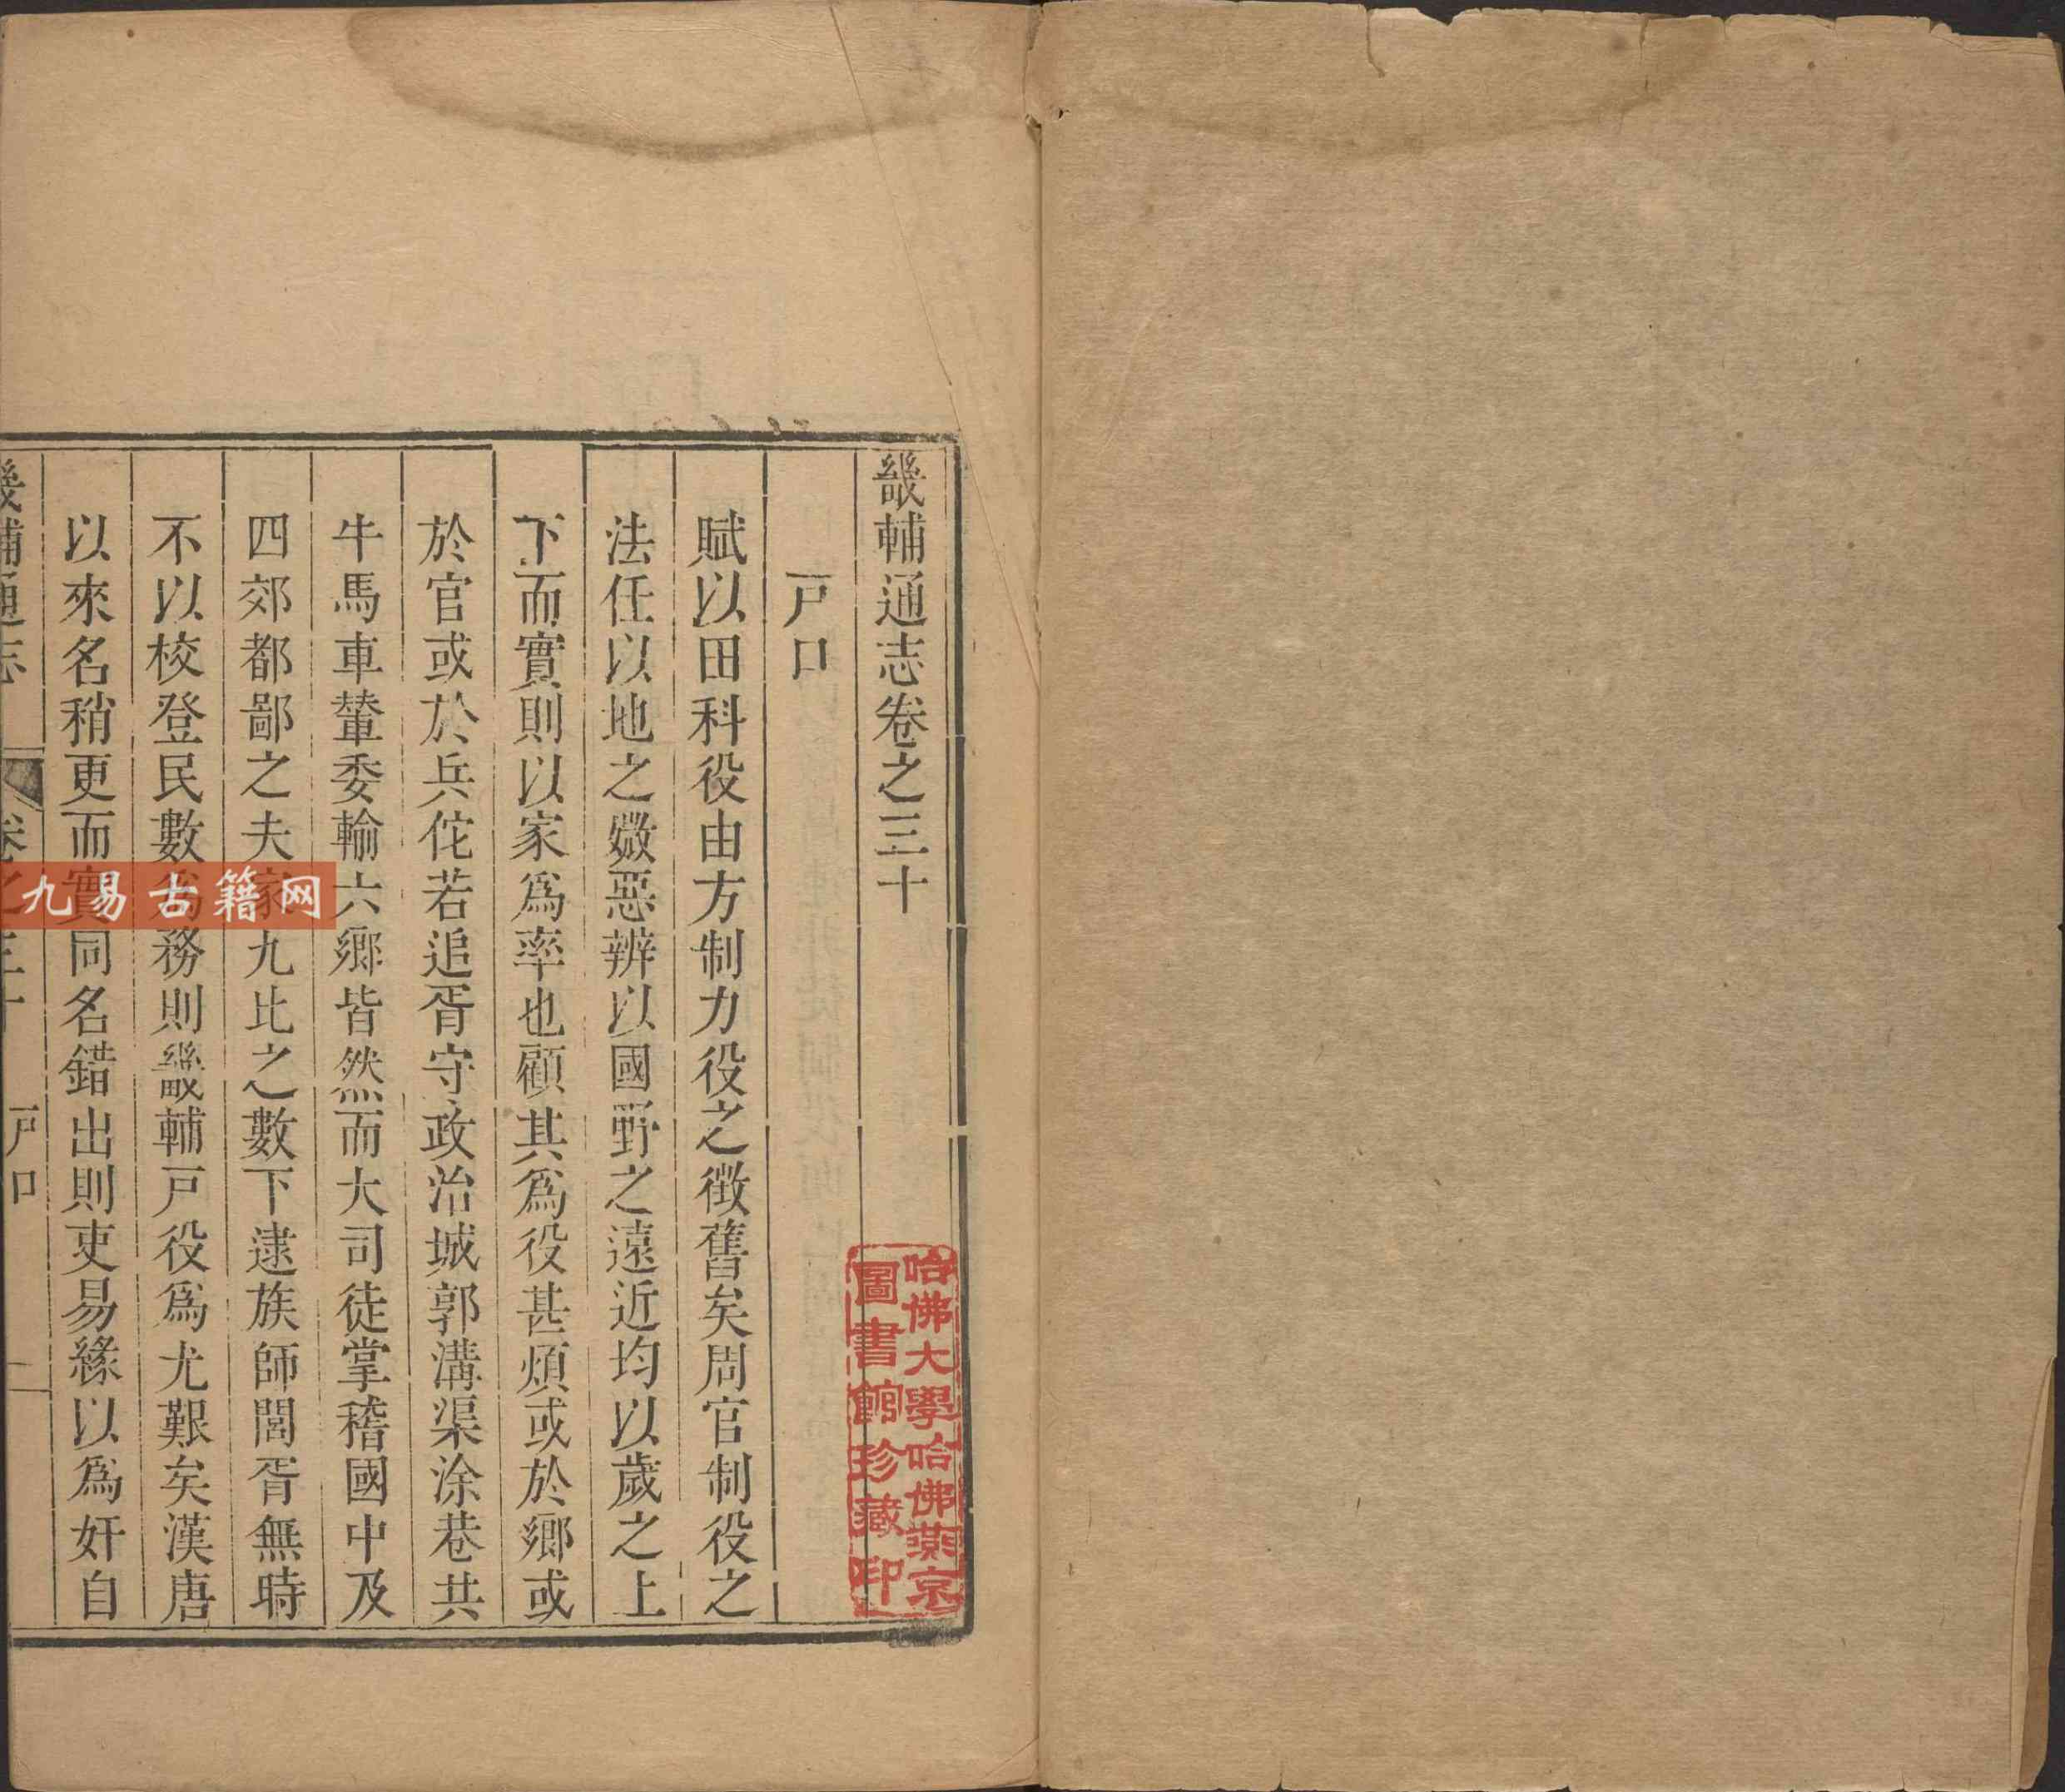 畿輔通志卷之三十
戸口
賦以田科役由方制力役之徴舊矣周官制役之
法任以地之媺惡辨以國野之遠近均以歲之上
下而實則以家爲率也顧其爲役甚煩或於鄉或
於官或於兵佗若追胥守政治城郭溝渠涂巷共
牛馬車輦委輸六鄉皆然而大司徒掌稽國中及
四郊都鄙之夫家九比之數下逮族師閭胥無時
不以校登民數爲務則畿輔戸役爲尤艱矣漢唐
以來名稍更而實同名錯出則吏易緣以爲奸自
畿輔通志 卷之三十 戸口 一
哈佛大學哈佛燕京
圖書館珍藏印
九易古籍网